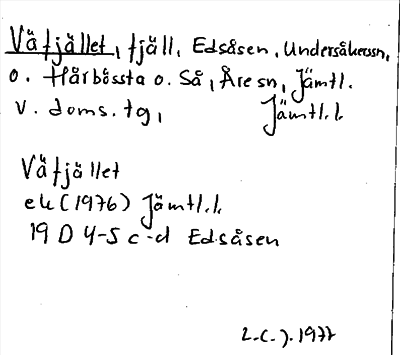 Väfjället, fjäll, Edsåsen, Undersåkerssn,
o. Hårbössta o. Så, Åresn, Jämtl.
v. doms. tg, Jämtl. l.
Väfjället
ek (1976) Jämtl. l.
19 D 4-5 c-d Edsåsen
1977